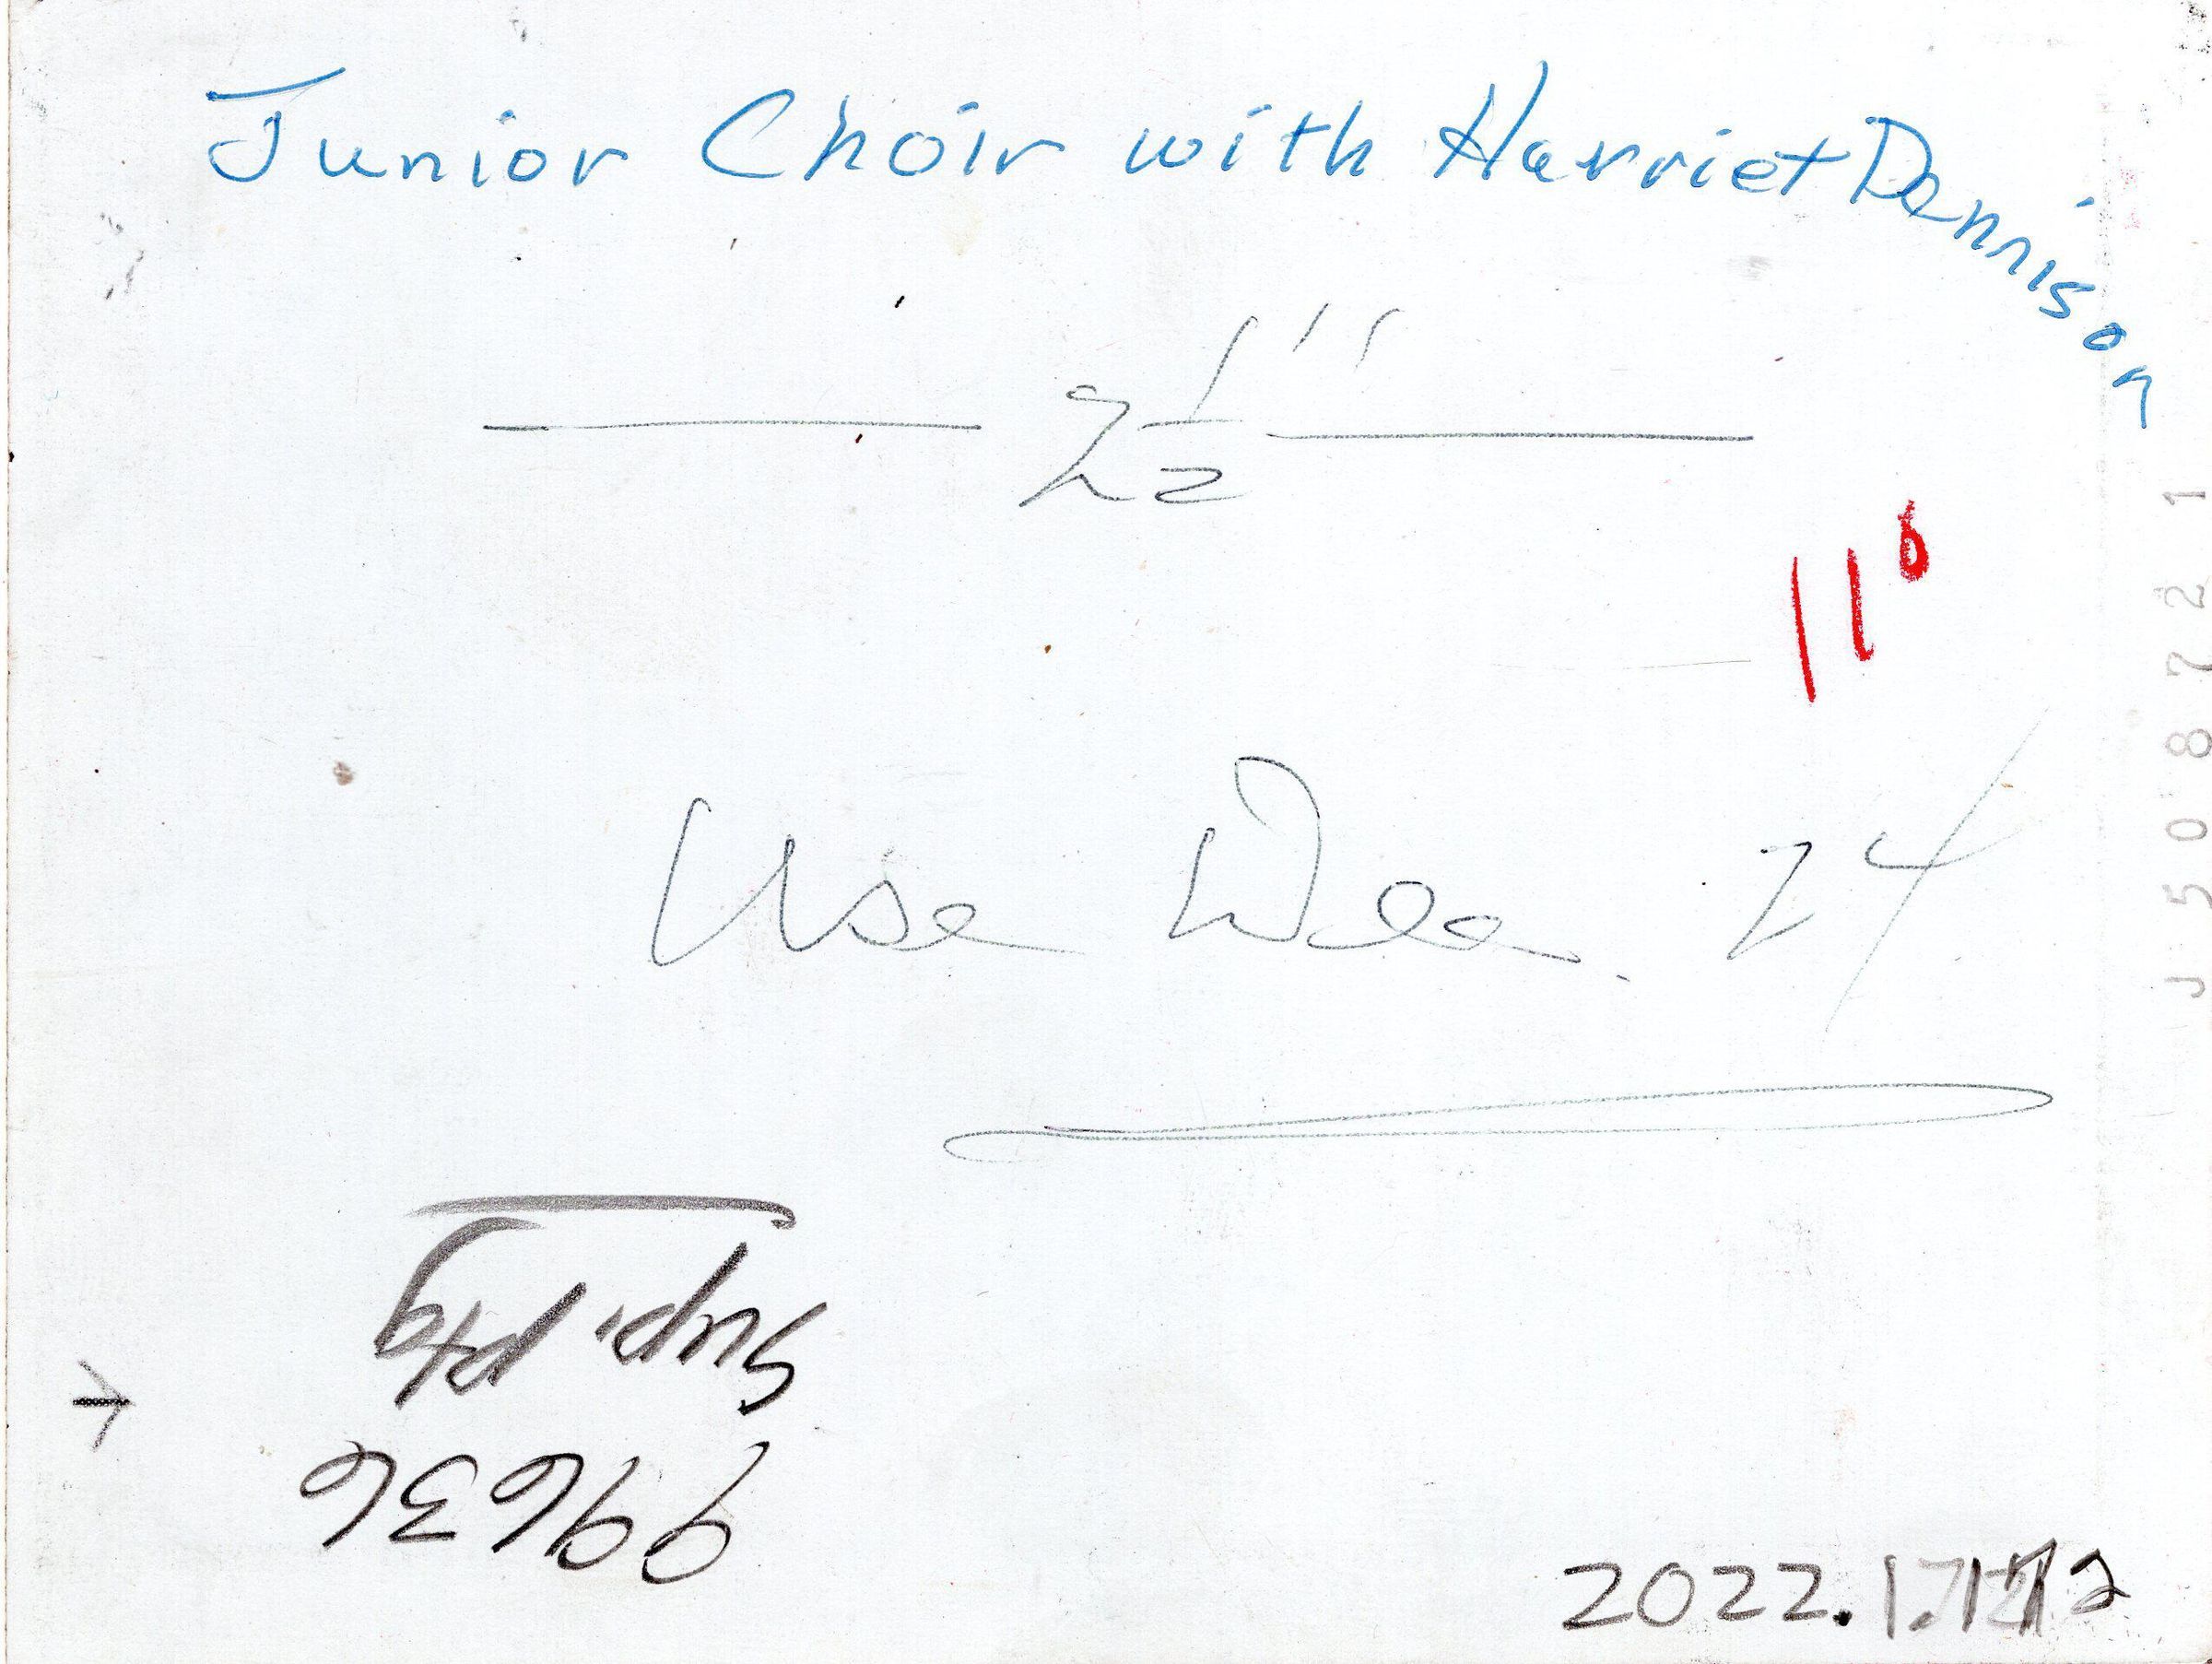 Junior Choir with Harriet Dennison
2 1/2"
11⁶
Use Dec. 24
J508721
99636
2022.